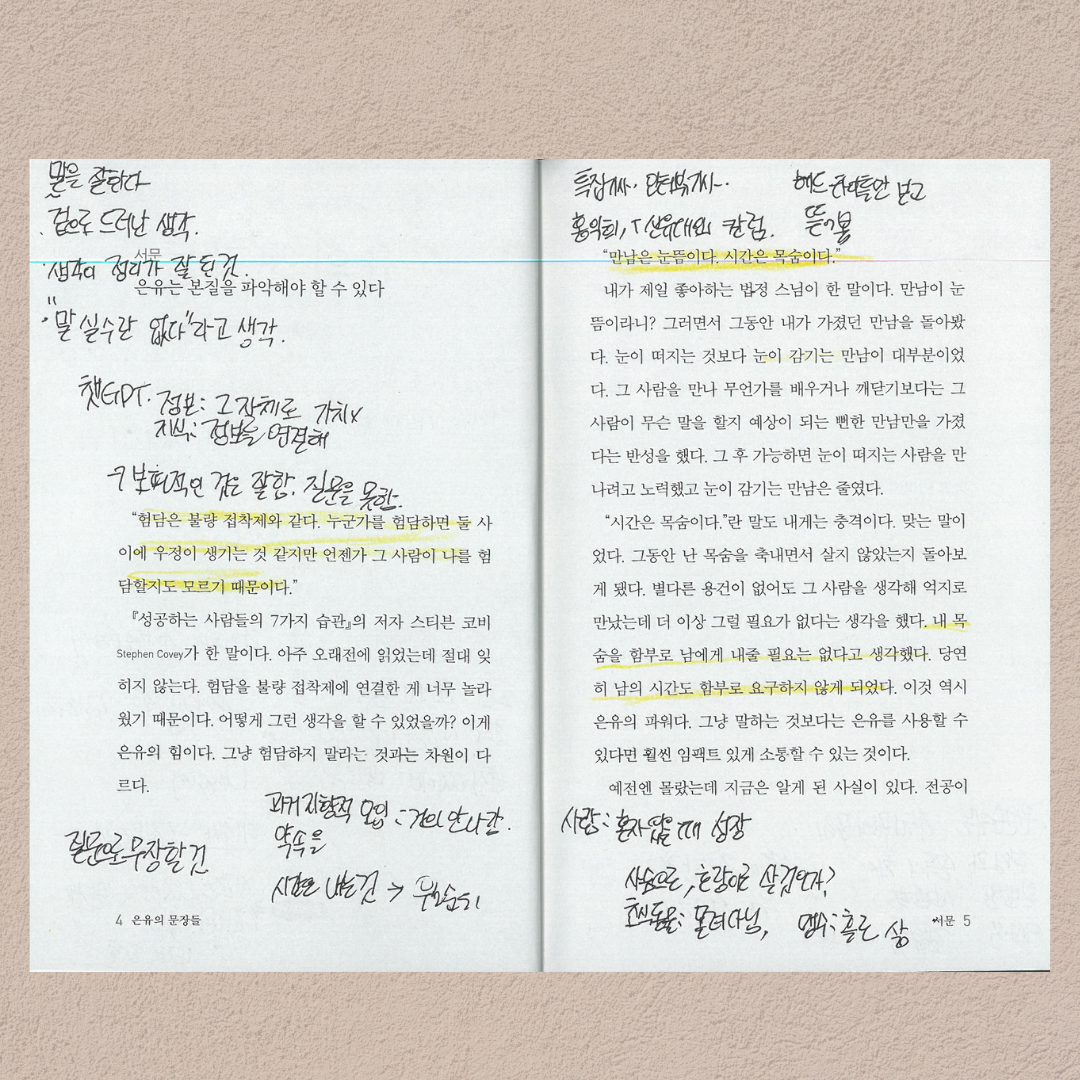 말을 잘한다
· 겉으로 드러난 생각.
서문
· 생각이 정리가 잘 된 것.
은유는 본질을 파악해야 할 수 있다
· "말 실수란 없다"라고 생각.
챗GPT. 정보: 그 자체로 가치x
지식: 정보를 연결해
보편적인 것은 잘함. 질문을 못함.
“험담은 불량 접착제와 같다. 누군가를 험담하면 둘 사
이에 우정이 생기는 것 같지만 언젠가 그 사람이 나를 험
담할지도 모르기 때문이다.”
『성공하는 사람들의 7가지 습관』의 저자 스티븐 코비
Stephen Covey가 한 말이다. 아주 오래전에 읽었는데 절대 잊
히지 않는다. 험담을 불량 접착제에 연결한 게 너무 놀라
웠기 때문이다. 어떻게 그런 생각을 할 수 있었을까? 이게
은유의 힘이다. 그냥 험담하지 말라는 것과는 차원이 다
르다.
과거지향적 모임 : 거의 안 나감.
질문으로 무장할 것
약속을
시간을 내는 것 →
4 은유의 문장들
특집기사. 인터뷰기사.
헤드 보고
홍익희, 칼럼.
“만남은 눈뜸이다. 시간은 목숨이다.”
내가 제일 좋아하는 법정 스님이 한 말이다. 만남이 눈
뜸이라니? 그러면서 그동안 내가 가졌던 만남을 돌아봤
다. 눈이 떠지는 것보다 눈이 감기는 만남이 대부분이었
다. 그 사람을 만나 무언가를 배우거나 깨닫기보다는 그
사람이 무슨 말을 할지 예상이 되는 뻔한 만남만을 가졌
다는 반성을 했다. 그 후 가능하면 눈이 떠지는 사람을 만
나려고 노력했고 눈이 감기는 만남은 줄였다.
“시간은 목숨이다.”란 말도 내게는 충격이다. 맞는 말이
었다. 그동안 난 목숨을 축내면서 살지 않았는지 돌아보
게 됐다. 별다른 용건이 없어도 그 사람을 생각해 억지로
만났는데 더 이상 그럴 필요가 없다는 생각을 했다. 내 목
숨을 함부로 남에게 내줄 필요는 없다고 생각했다. 당연
히 남의 시간도 함부로 요구하지 않게 되었다. 이것 역시
은유의 파워다. 그냥 말하는 것보다는 은유를 사용할 수
있다면 훨씬 임팩트 있게 소통할 수 있는 것이다.
예전엔 몰랐는데 지금은 알게 된 사실이 있다. 전공이
사람: 혼자 있을 때 성장
사슴으로, 호랑이로 살 것인가?
초식동물: 몰려다님, 맹수: 홀로 삶
서문 5